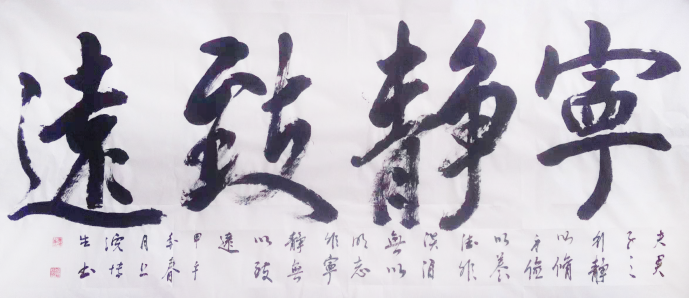 寧靜致遠
夫君
子之
行靜
以脩
身儉
以養
德非
淡泊
無以
明志
非寧
靜無
以致
遠
甲午
年春
月上
浣
生書